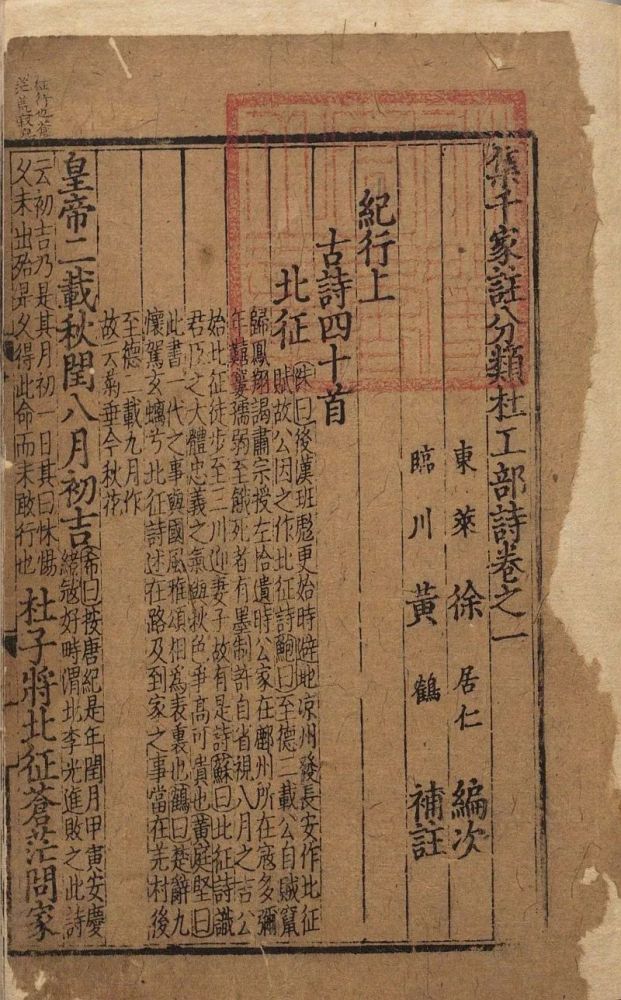 集千家註分類杜工部詩卷之一
東萊 徐 居仁 編次
臨川 黃 鶴 補註
紀行上
古詩四十首
北征
洙曰後漢班彪更始時避地凉州發長安作北征
賦故公因之作北征詩鮑曰至德二載公自賊竄
歸鳳翔謁肅宗授左拾遺時公家在鄜州所在寇多彌
年艱窶孺弱至餓死者有墨制許自省視八月之吉公
始北征徒步至三川迎妻子故有是詩蘇曰北征詩識
君臣之大體忠義之氣與秋色爭高可貴也黃庭堅曰
此書一代之事與國風雅頌相為表裏也鶴曰楚辭九
懷駕玄螭兮北征詩述在路及到家之事當在羌村後
至德二載九月作
故云菊垂今秋花
皇帝二載秋閏八月初吉
希曰按唐紀是年閏月甲寅安慶
緒寇好時渭北李光進敗之此詩
云初吉乃是其月初一日其曰怵惕
久未出殆是久得此命而未敢行也
杜子將北征蒼茫問家
征行也蒼